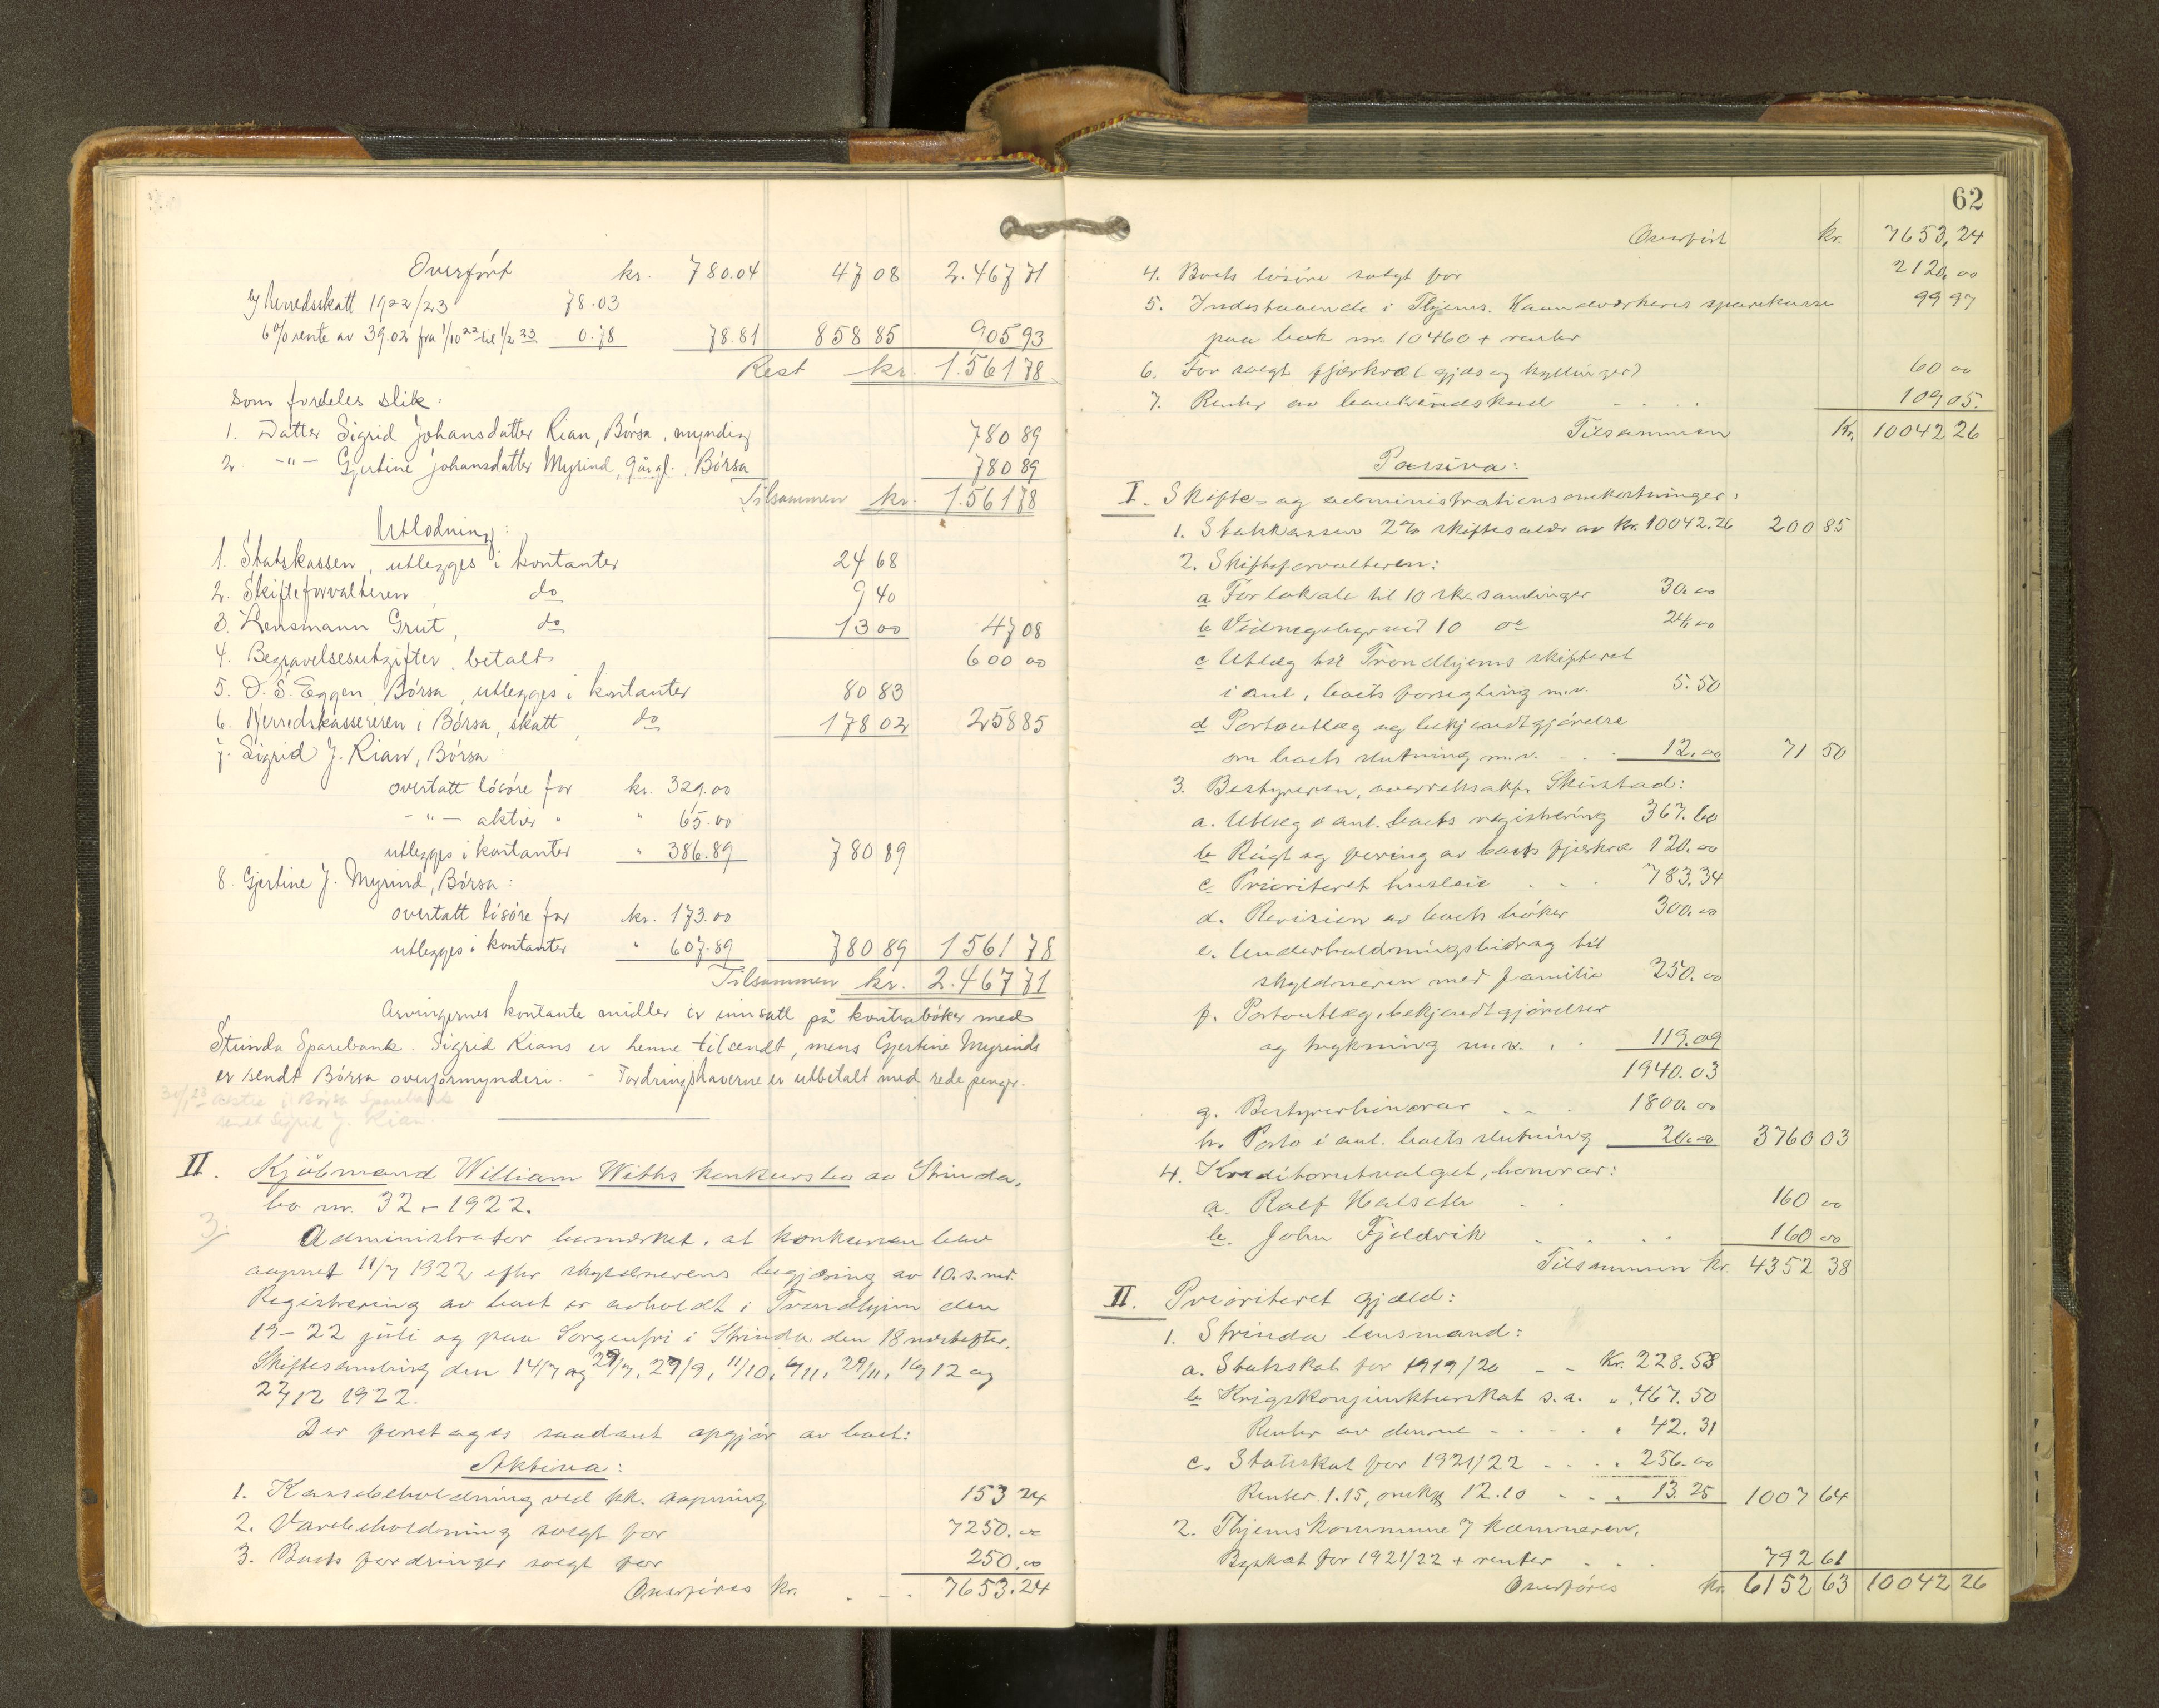 Overført kr. 780.04 47 08 2.467 71
g) Herredsskatt 1922/23 78.03
6% rente av 39.02 fra 1/10 22 til 1/2 23 0.78 78.81 858 85 905 93
Rest kr. 1.561 78
som fordeles slik:
1. Datter Sigrid Johansdatter Rian, Børsa, myndig 780 89
2. -"- Gjertine Johansdatter Myrind, Børsa 780 89
Tilsammen kr. 1.561 78
Utlodning:
1. Statskassen, utlegges i kontanter 24 68
2. Skifteforvalteren, do 9 40
3. Lensmann Grut, do 13 00 47 08
4. Begravelsesutgifter, betalt 600 00
5. O. S. Eggen, Børsa, utlegges i kontanter 80 83
6. Herredskassereren i Børsa, skatt, do 178 02 258 85
7. Sigrid J. Rian, Børsa
overtatt løsøre for kr. 329.00
-"- aktier " " 65.00
utlegges i kontanter " 386.89 780 89
8. Gjertine J. Myrind, Børsa:
overtatt løsøre for kr. 173.00
utlegges i kontanter " 607.89 780 89 1561 78
Tilsammen kr. 2.467 71
Arvingernes kontante midler er innsatt på kontrabøker med
Strinda Sparebank. Sigrid Rians er henne tilsendt, mens Gjertine Myrinds
er sendt Børsa overformynderi. - Fordringshaverne er utbetalt med rede penger.
aktie i Børsa Sparebank
sendt Sigrid J. Rian.
II. Kjøbmand William Withs konkursbo av Strinda,
bo nr. 32 - 1922.
3/
Administrator bemerket, at konkursen blev
aapnet 11/7 1922 efter skyldnerens begjæring av 10. s. md.
Registrering av boet er avholdt i Trondhjem den
19-22 juli og paa Sorgenfri i Strinda den 18 næstefter.
Skiftesamling den 14/7 og 29/7, 29/9, 11/10, 6/11, 29/11, 16/12 og
22/12 1922.
Der foretages saadant opgjør av boet:
Aktiva:
1. Kassebeholdning ved kk. aapning 153 24
2. Varebeholdning solgt for 7250.00
3. Boets fordringer solgt for 250.00
Overføres kr. 7653.24
62
Overført kr. 7653,24
4. Boets løsøre solgt for 2120.00
5. Indestaaende i Thjems. Haandverkeres sparekasse 99 97
paa bok nr. 10460 + renter
6. For solgt fjærkræ (gjæs og kyllinger) 60 00
7. Renter av bankindskud 109 05.
Tilsammen Kr. 10042 26
Passiva:
I. Skifte- og administrationsomkostninger:
1. Statskassen 2% skiftesalær av kr. 10042.26 200 85
2. Skifteforvalteren:
a For lokale til 10 sk. samlinger 30.00
b Vidnegebyr ved 10 do 24.00
c Utlæg til Trondhjems skifteret
i anl. boets forsegling m.v. 5.50
d Portoutlæg og bekjendtgjørelse
om boets slutning m.v. 12.00 71 50
3. Bestyreren, overretssakf. Skirstad:
a. Utlæg i anl. boets registrering 367.60
b Røgt og foring av boets fjærkræ 120.00
c Prioritert husleie 783.34
d. Revision av boets bøker 300.00
e. Underholdningsbidrag til
skyldneren med familie 250.00
f. Portoutlæg, bekjendtgjørelser
og trykning m.v. 119.09
1940.03
g. Bestyrerhonorar 1800.00
h. Porto i anl. boets slutning 20.00 3760 03
4. Kreditorutvalget, honorar:
a. Ralf Halseth 160 00
b. John Fjeldvik 160 00
Tilsammen kr. 4352 38
II. Prioritert gjæld:
1. Strinda lensmand:
a. Statsskat for 1919/20 - - Kr. 228.58
b Krigskonjunkturskat s.a. " 467.50
Renter av denne 42.31
c. Statsskat for 1921/22 256.00
Renter 1.15, omk. 12.10 13.25 1007 64
2. Thjems kommune v/ kæmneren,
Byskat for 1921/22 + renter 792 61
Overføres kr. 6152 63 10042 26